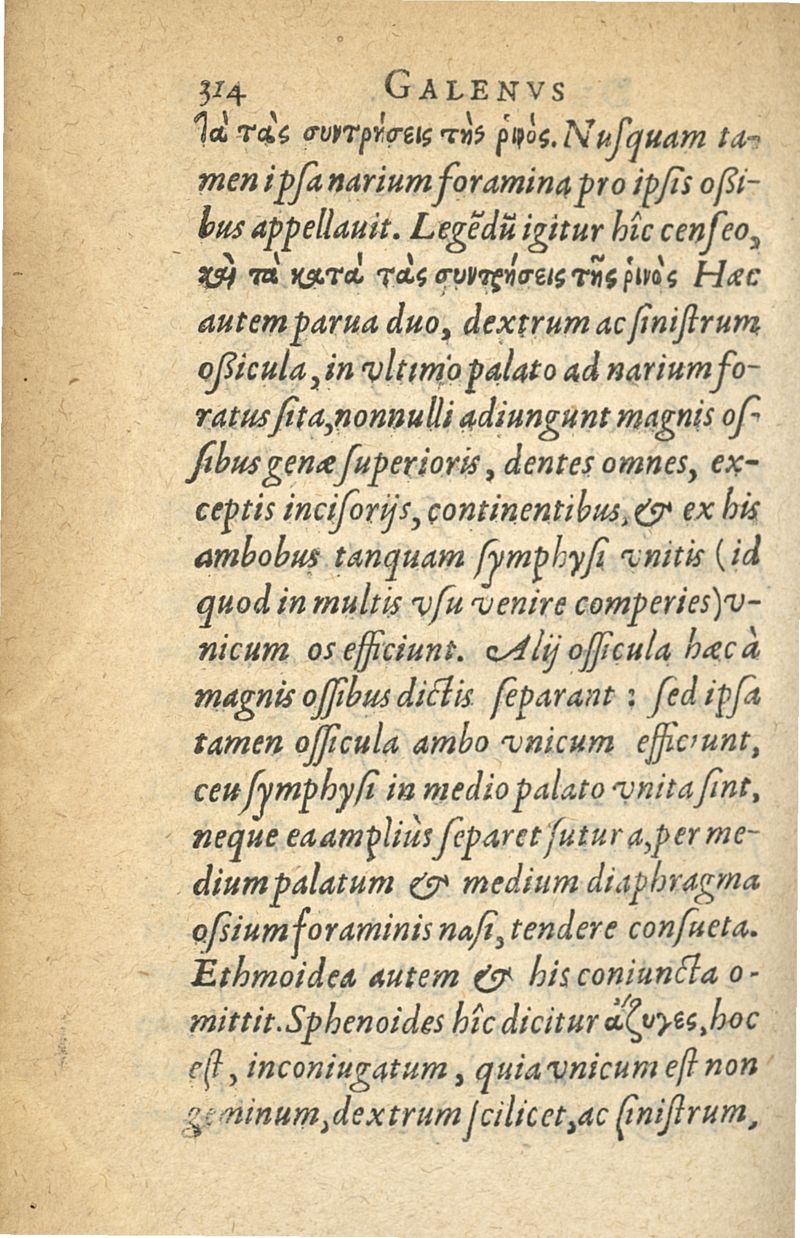 314 GALENVS
τὰ τὰς συντρήσεις τῆς ῥινός. Nuſquam ta-
men ipſa narium foramina pro ipſis oßi-
bus appellauit. Legẽdũ igitur hîc cenſeo,
καὶ τὰ κατὰ τὰς συντρήσεις τῆς ῥινὸς Hæc
autem parua duo, dextrum ac ſiniſtrum
oßicula, in vltimo palato ad narium fo-
ratus ſita, nonnulli adiungunt magnis oſ-
ſibus genæ ſuperioris, dentes omnes, ex-
ceptis inciſorijs, continentibus, & ex his
ambobus tanquam ſymphyſi vnitis (id
quod in multis vſu venire comperies) v-
nicum os efficiunt. Alij oſſicula hæc à
magnis oſſibus dictis ſeparant : ſed ipſa
tamen oſſicula ambo vnicum efficiunt,
ceu ſymphyſi in medio palato vnita ſint,
neque ea ampliùs ſeparet ſutura, per me-
dium palatum & medium diaphragma
oßium foraminis naſi, tendere conſueta.
Ethmoidea autem & his coniuncta o-
mittit. Sphenoides hîc dicitur ἄζυγες, hoc
eſt, inconiugatum, quia vnicum eſt non
geminum, dextrum ſcilicet, ac ſiniſtrum,